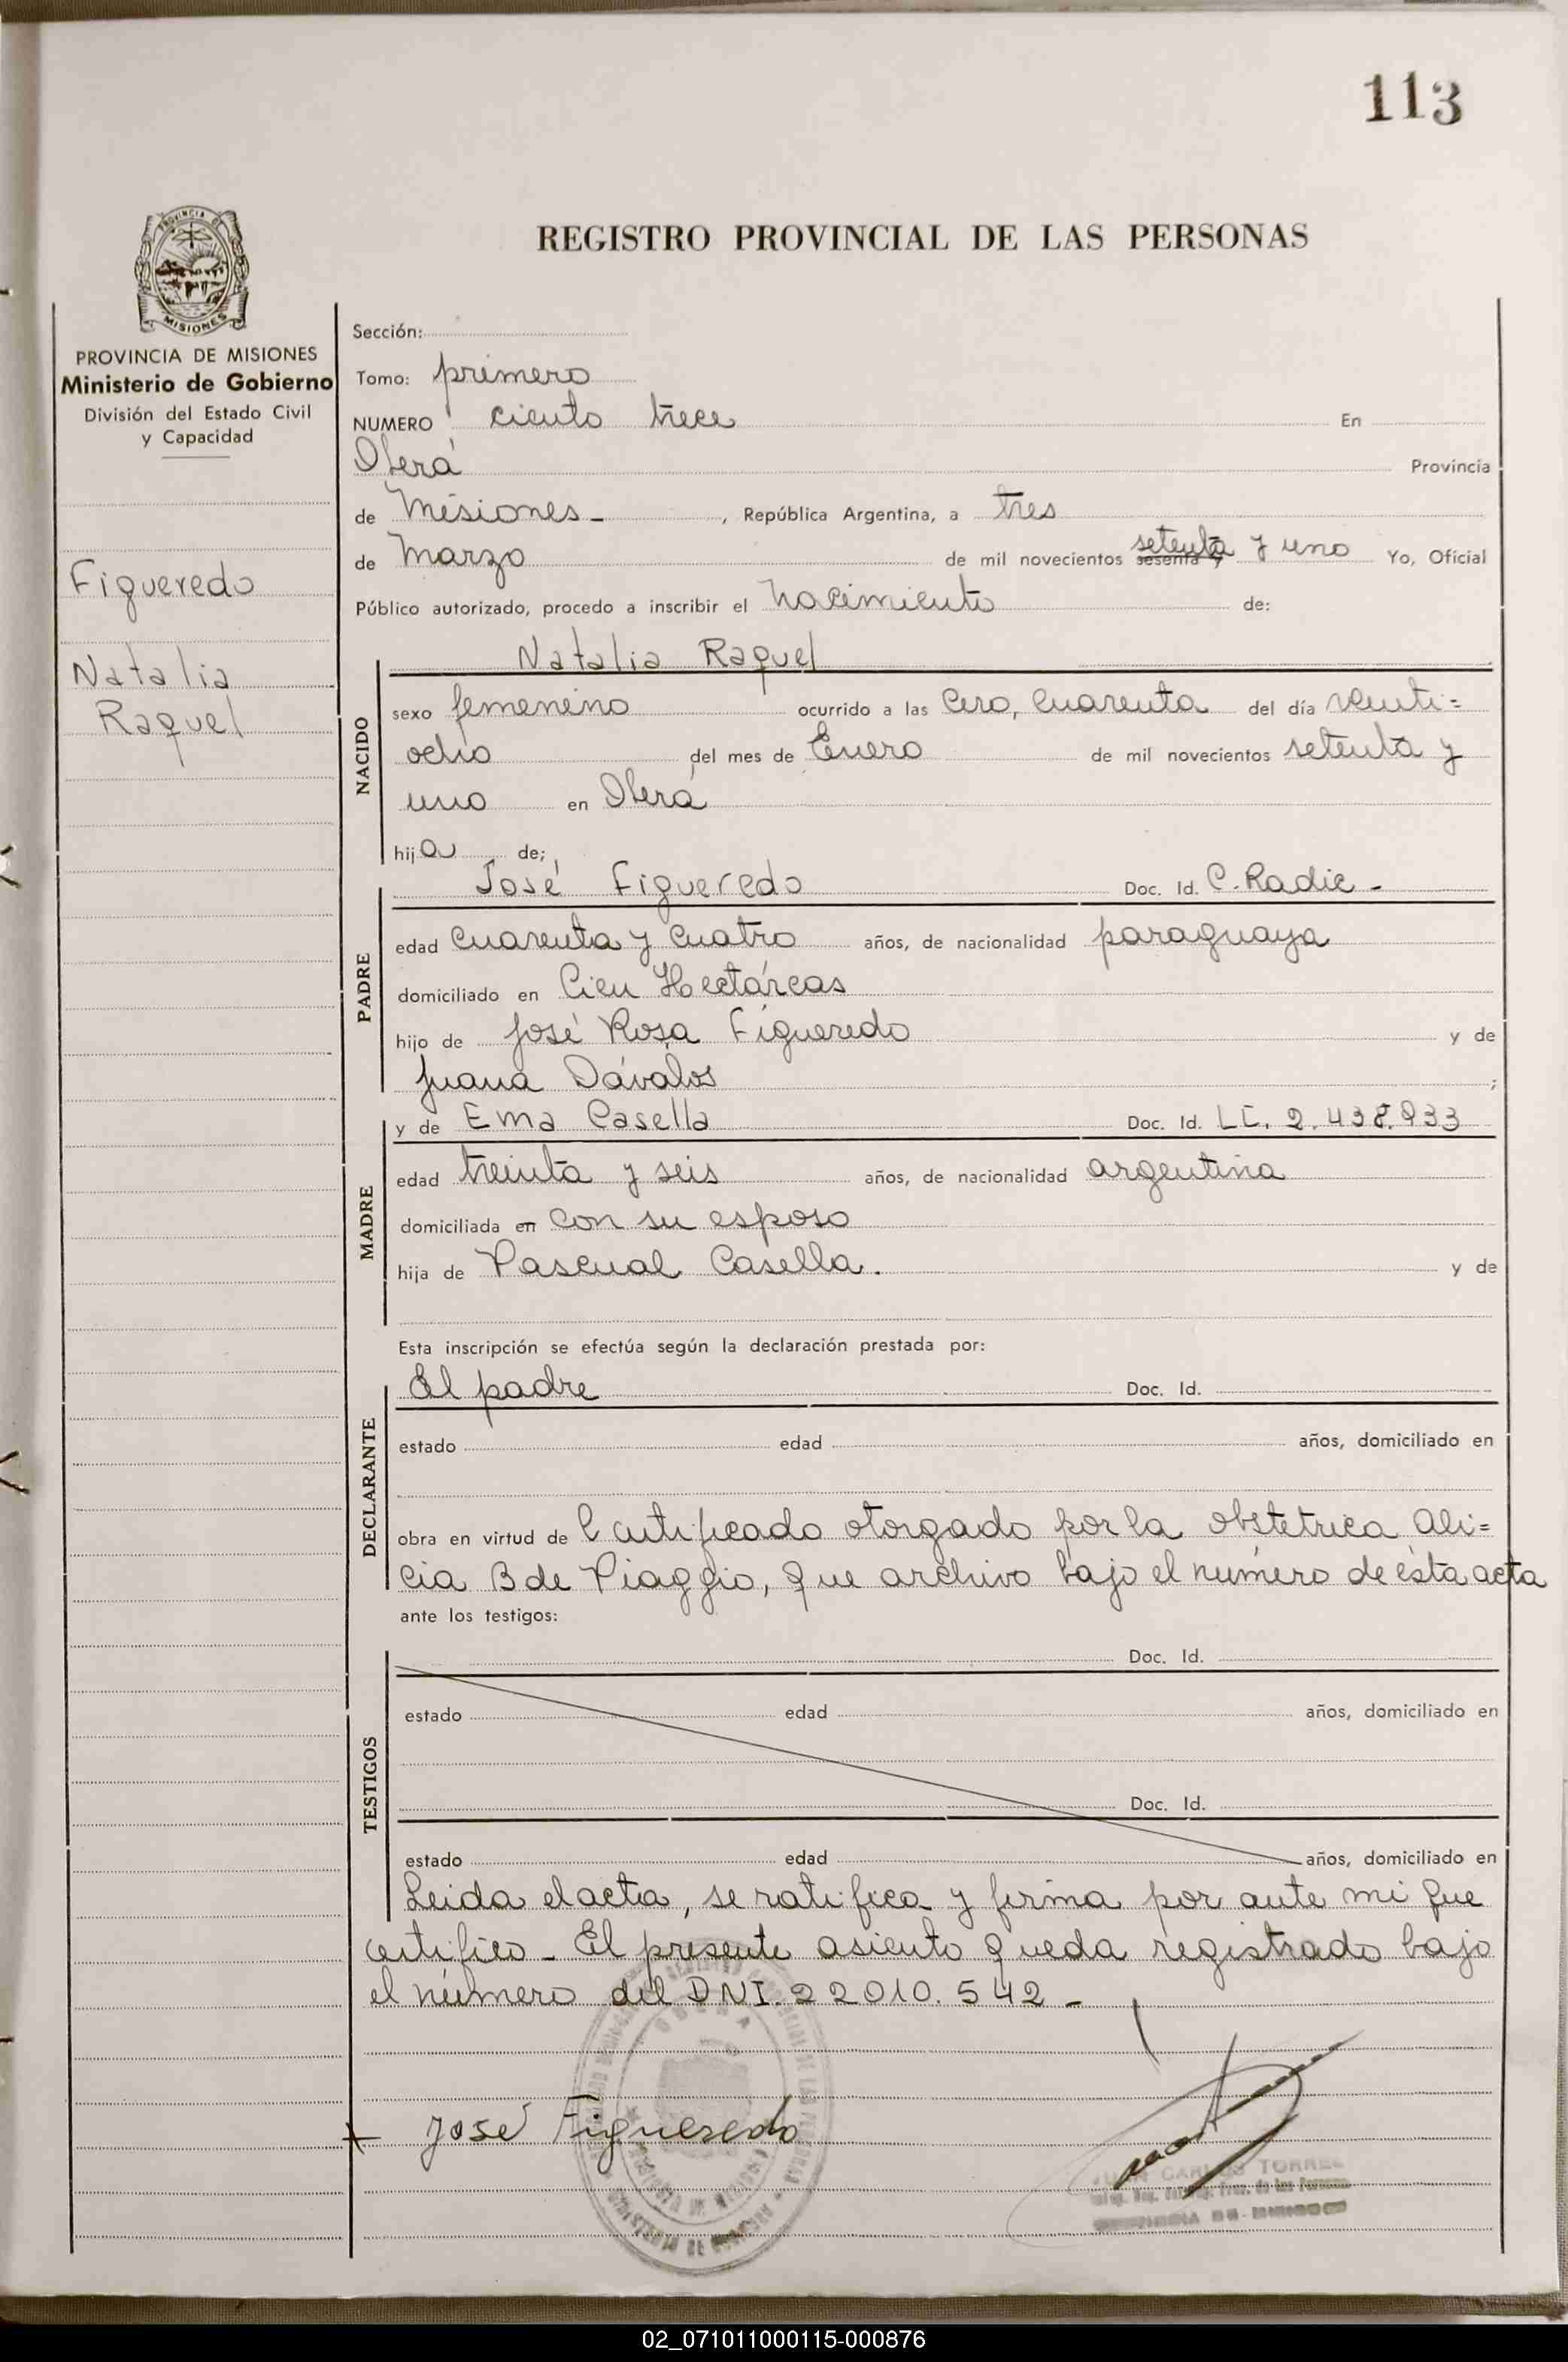 113
REGISTRO PROVINCIAL DE LAS PERSONAS
PROVINCIA DE
MISIONES
PROVINCIA DE MISIONES
Ministerio de Gobierno
División del Estado Civil
y Capacidad
Figueredo
Natalia
Raquel
Sección:
Tomo: primero
NUMERO ciento trece En
Oberá Provincia
de Misiones - , República Argentina, a tres
de Marzo de mil novecientos sesenta y setenta y uno Yo, Oficial
Público autorizado, procedo a inscribir el Nacimiento de:
Natalia Raquel
NACIDO
sexo femenino ocurrido a las Cero, Cuarenta del día venti=
ocho del mes de Enero de mil novecientos setenta y
uno en Oberá
hija de;
José Figueredo Doc. Id. C. Radic -
PADRE
edad Cuarenta y Cuatro años, de nacionalidad paraguaya
domiciliado en Cien Hectáreas
hijo de José Rosa Figueredo y de
Juana Dávalos ;
y de Ema Casella Doc. Id. LC. 2.438.933
MADRE
edad treinta y seis años, de nacionalidad argentina
domiciliada en con su esposo
hija de Pascual Casella. y de
Esta inscripción se efectúa según la declaración prestada por:
El padre Doc. Id.
DECLARANTE
estado edad años, domiciliado en
obra en virtud de Certificado otorgado por la obstetrica Ali=
cia B de Piaggio, que archivo bajo el número de ésta acta
ante los testigos:
Doc. Id.
TESTIGOS
estado edad años, domiciliado en
Doc. Id.
estado edad años, domiciliado en
Leida el acta, se ratifica y firma por ante mi que
certifico - El presente asiento queda registrado bajo
el número del DNI. 22010.542 -
José Figueredo
JUAN CARLOS TORRES
02_071011000115-000876